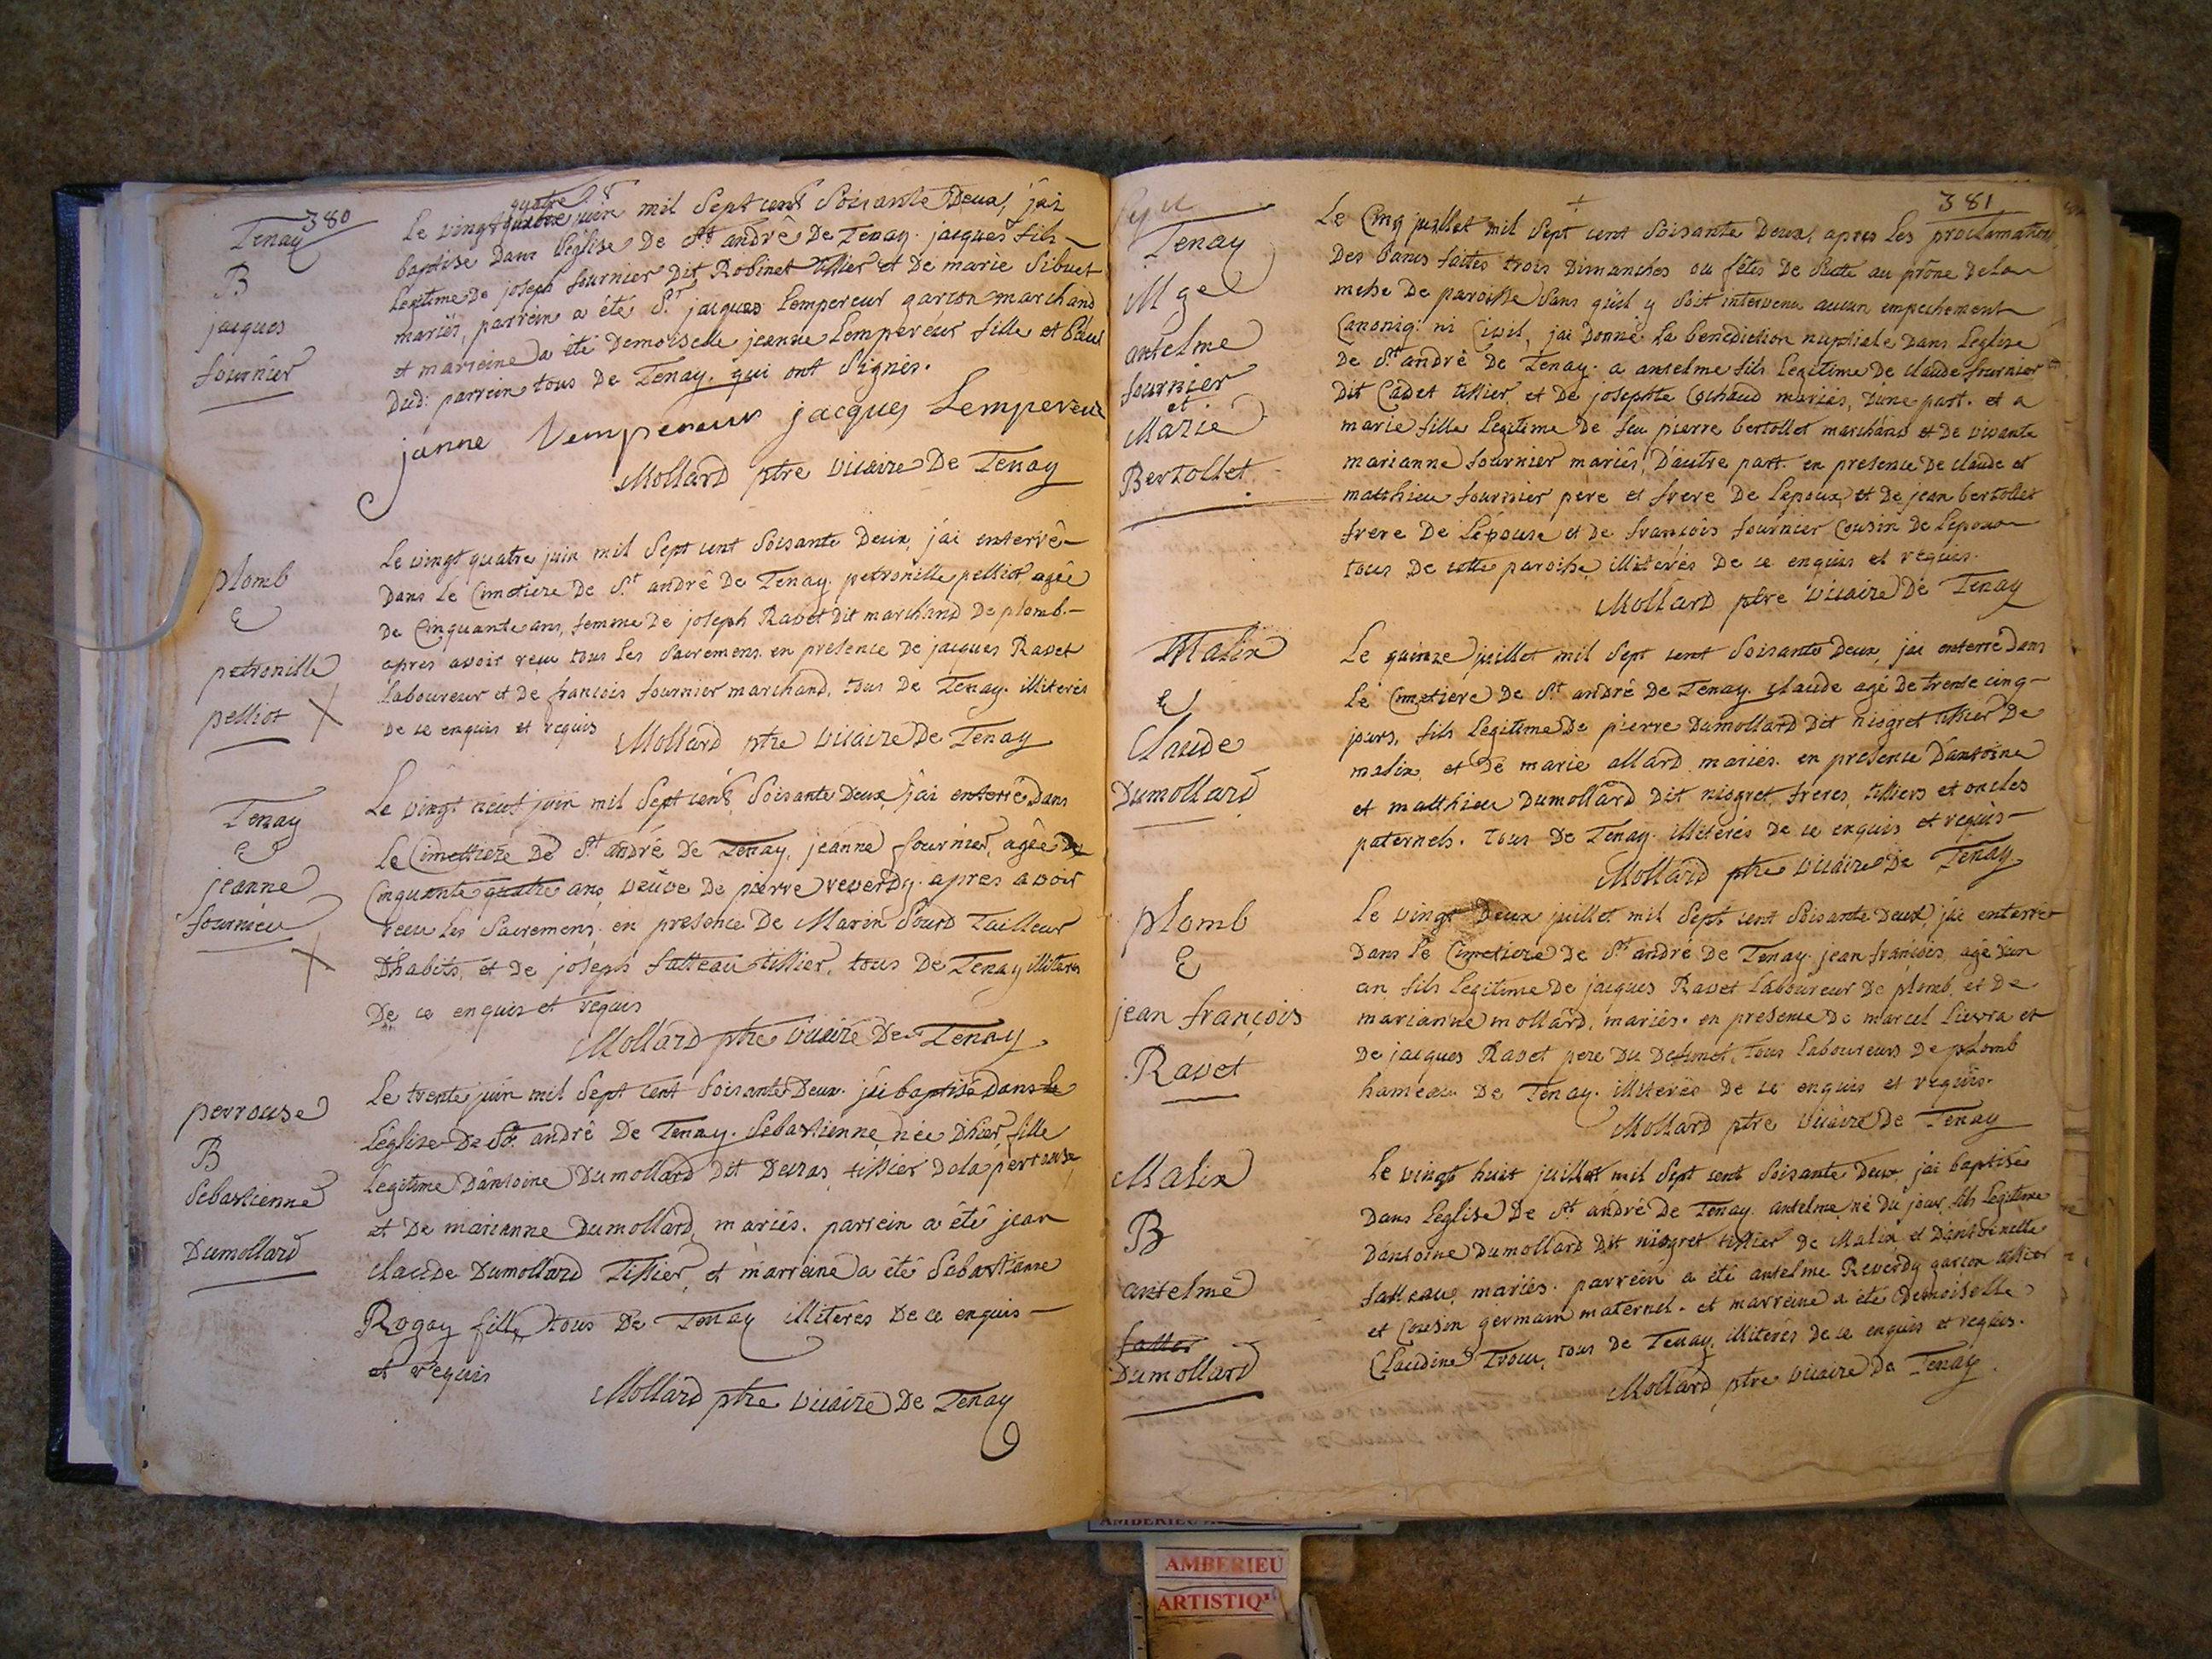 380
Tenay
B
jacques
fournier
Le vingt quatre juin mil Sept cent Soisante Deux, j'ai
baptisé Dans l'église De St andré De Tenay. jacques fils
Legitime De joseph fournier Dit Robinet tissier et De marie Sibuet
mariés, parrein a été Sr. jacques Lempereur garcon marchand
et marreine a été Demoiselle jeanne Lempereur fille et
Dud: parrein tous De Tenay. qui ont Signés.
janne Lempereur jacques Lempereur
Mollard ptre vicaire De Tenay
plomb
E
petronille
pelliot
Le vingt quatre juin mil Sept cent Soisante Deux, j'ai enterré
Dans Le Cimetiere De St andré De Tenay. petronille pelliot agée
De Cinquante ans, femme De joseph Ravet Dit marchand De plomb.
apres avoir recu tous Les Sacremens. en presence De jacques Ravet
Laboureur et De francois fournier marchand, tous De Tenay. illiterés
De ce enquis et requis
Mollard ptre vicaire De Tenay
Tenay
E
jeanne
fournier
Le vingt neuf juin mil Sept cent Soisante Deux j'ai enterré Dans
Le Cimettiere De St andré De Tenay, jeanne fournier, agée De
Cinquante quatre ans, veuve De pierre reverdy. apres avoir
recu Les Sacremens, en presence De Marin Sourd Tailleur
D'habits, et De joseph fatteau tissier, tous De Tenay illiterés
De ce enquis et requis
Mollard ptre vicaire De Tenay
perrouse
B
Sebastienne
Dumollard
Le trente juin mil Sept cent Soisante Deux. j'ai baptisé Dans le
L'église De St. andré De Tenay. Sebastienne, née D'hier, fille
Legitime D'antoine Dumollard Dit tissier De la perrouse
et De marianne Dumollard, mariés. parrein a été jean
claude Dumollard Tissier, et marreine a été Sebastienne
Rogay fille, tous De Tenay illiterés De ce enquis
et requis
Mollard ptre vicaire De Tenay
381
Tenay
Mge
antelme
fournier
et
Marie
Bertollet
Le Cinq juillet mil Sept cent Soisante Deux, apres Les proclamations
Des bancs faites trois Dimanches ou fêtes De Suite au prône De la
messe De paroisse Sans qu'il y Soit intervenu aucun empechement
Canoniq. ni Civil, j'ai Donné La benediction nuptiale Dans Leglise
De St andré De Tenay. a anselme fils Legitime De claude fournier
Dit Cadet tissier, et De josephte Cochaud mariés, D'une part. et a
marie fille Legitime De feu pierre bertollet marchand et De vivante
marianne fournier mariés, D'autre part. en presence De claude et
matthieu fournier pere et frere De Lepoux, et De jean bertollet
frere De Lépouse et De francois fournier Cousin De Lepoux
tous De cette paroisse, illiterés De ce enquis et requis.
Mollard ptre vicaire De Tenay
Malix
E
Claude
Dumollard
Le quinze juillet mil Sept cent Soisante Deux, j'ai enterré Dans
Le Cimetiere De St andré De Tenay. claude agé De trente cinq
jours, fils Legitime De pierre Dumollard Dit niogret tissier De
malix, et De marie allard mariés. en presence D'antoine
et matthieu Dumollard Dit niogret, freres, tissiers et oncles
paternels. tous De Tenay. illiterés De ce enquis et requis
Mollard ptre vicaire De Tenay
plomb
E
jean françois
Ravet
Le vingt Deux juillet mil Sept cent Soisante Deux, j'ai enterré
Dans Le Cimetiere De St andré De Tenay. jean francois, agé D'un
an, fils Legitime De jacques Ravet Laboureur De plomb, et De
marianne mollard, mariés. en presence De marcel Lievra et
De jacques Ravet pere Du Defunct, tous Laboureurs De plomb
hameau De Tenay. illiterés De ce enquis et requis.
Mollard ptre vicaire De Tenay
Malix
B
antelme
Dumollard
Le vingt huit juillet mil Sept cent Soisante Deux, j'ai baptisé
Dans L'eglise De St andré De Tenay. antelme, né Du jour, fils Legitime
D'antoine Dumollard Dit niogret tissier De Malix et D'antoinette
fatteau, mariés. parrein a été antelme Reverdy garcon tissier
et Cousin germain maternel. et marreine a été Demoiselle
Claudine Trocu, tous De Tenay, illiterés De ce enquis et requis.
Mollard ptre vicaire De Tenay
AMBERIEU
ARTISTIQ